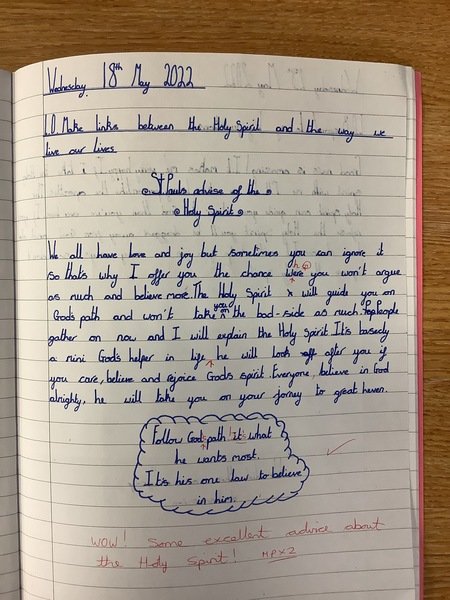 Wednesday 18th May 2022
L.O. Make links between the Holy Spirit and the way we
live our lives.
St. Pauls advise of the
Holy Spirit
We all have love and joy but sometimes you can ignore it
so that's why I offer you the chance were you won't argue
as much and believe more. The Holy Spirit x will guide you on
God's path and won't take you on the bad-side as much. People
gather on now and I will explain the Holy Spirit. It's basecly
a mini God's helper in life, he will look after you if
you care, believe and rejoice Gods spirit. Everyone, believe in God
almighty, he will take you on your jorney to great heven.
Follow God path it's what
he wants most.
It's his one law to believe
in him.
WOW! Some excellent advice about
the Holy Spirit! HPX2